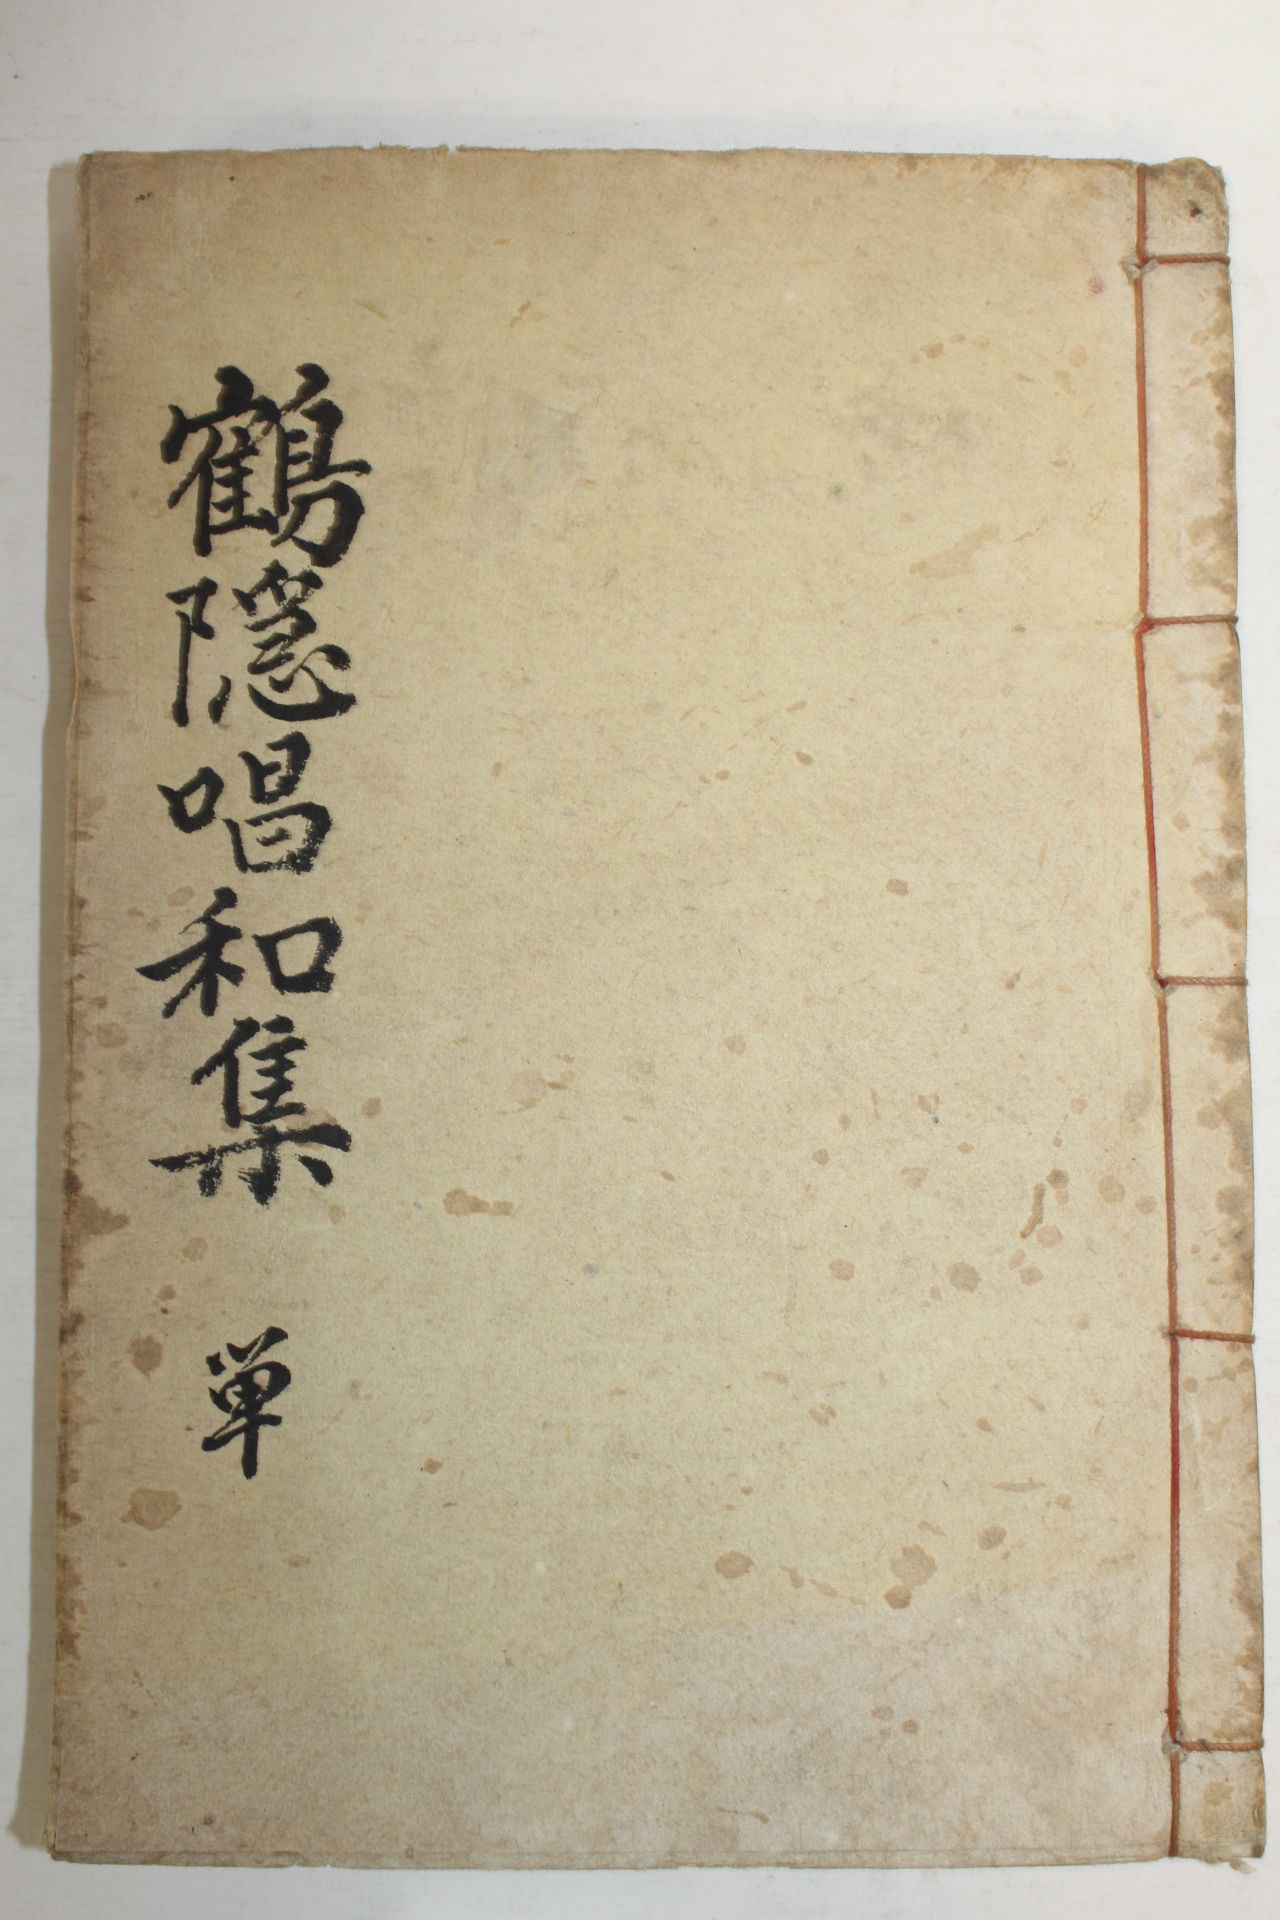 鶴隱唱和集 单